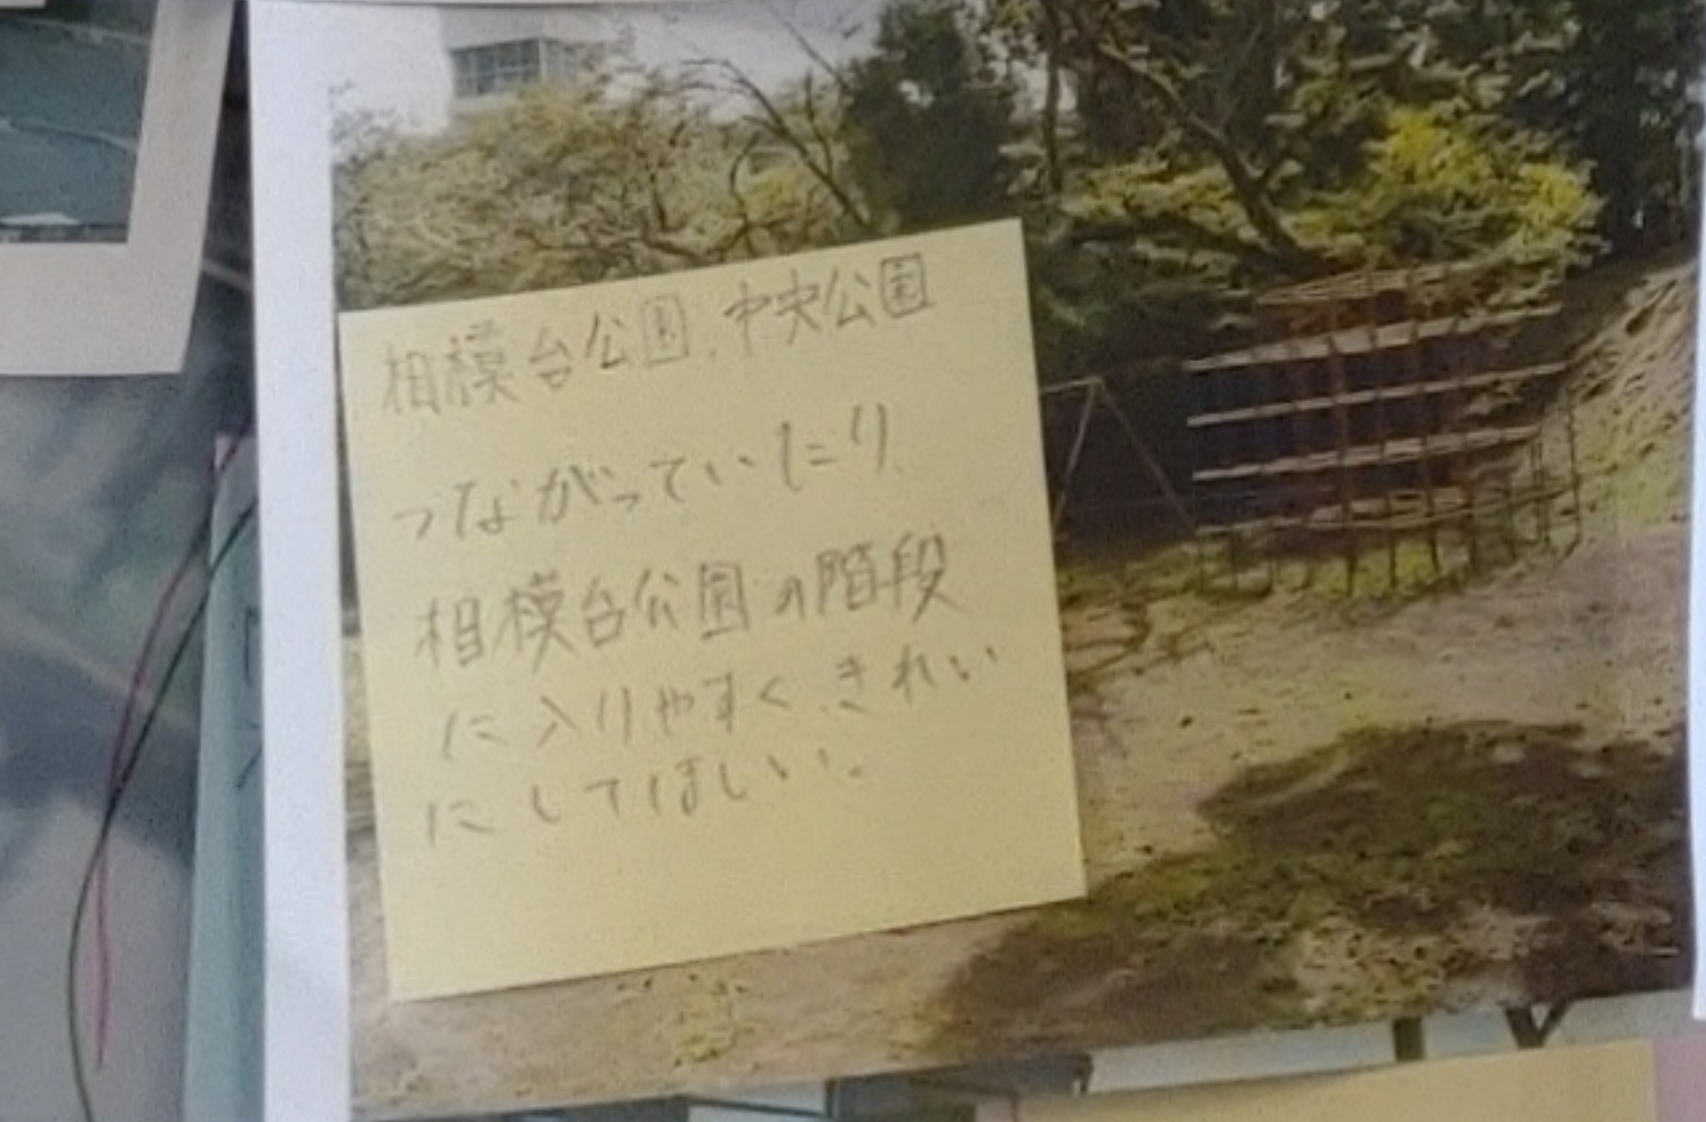 相模台公園、中央公園
つながっていたり
相模台公園の階段
に入りやすく、きれい
にしてほしい。